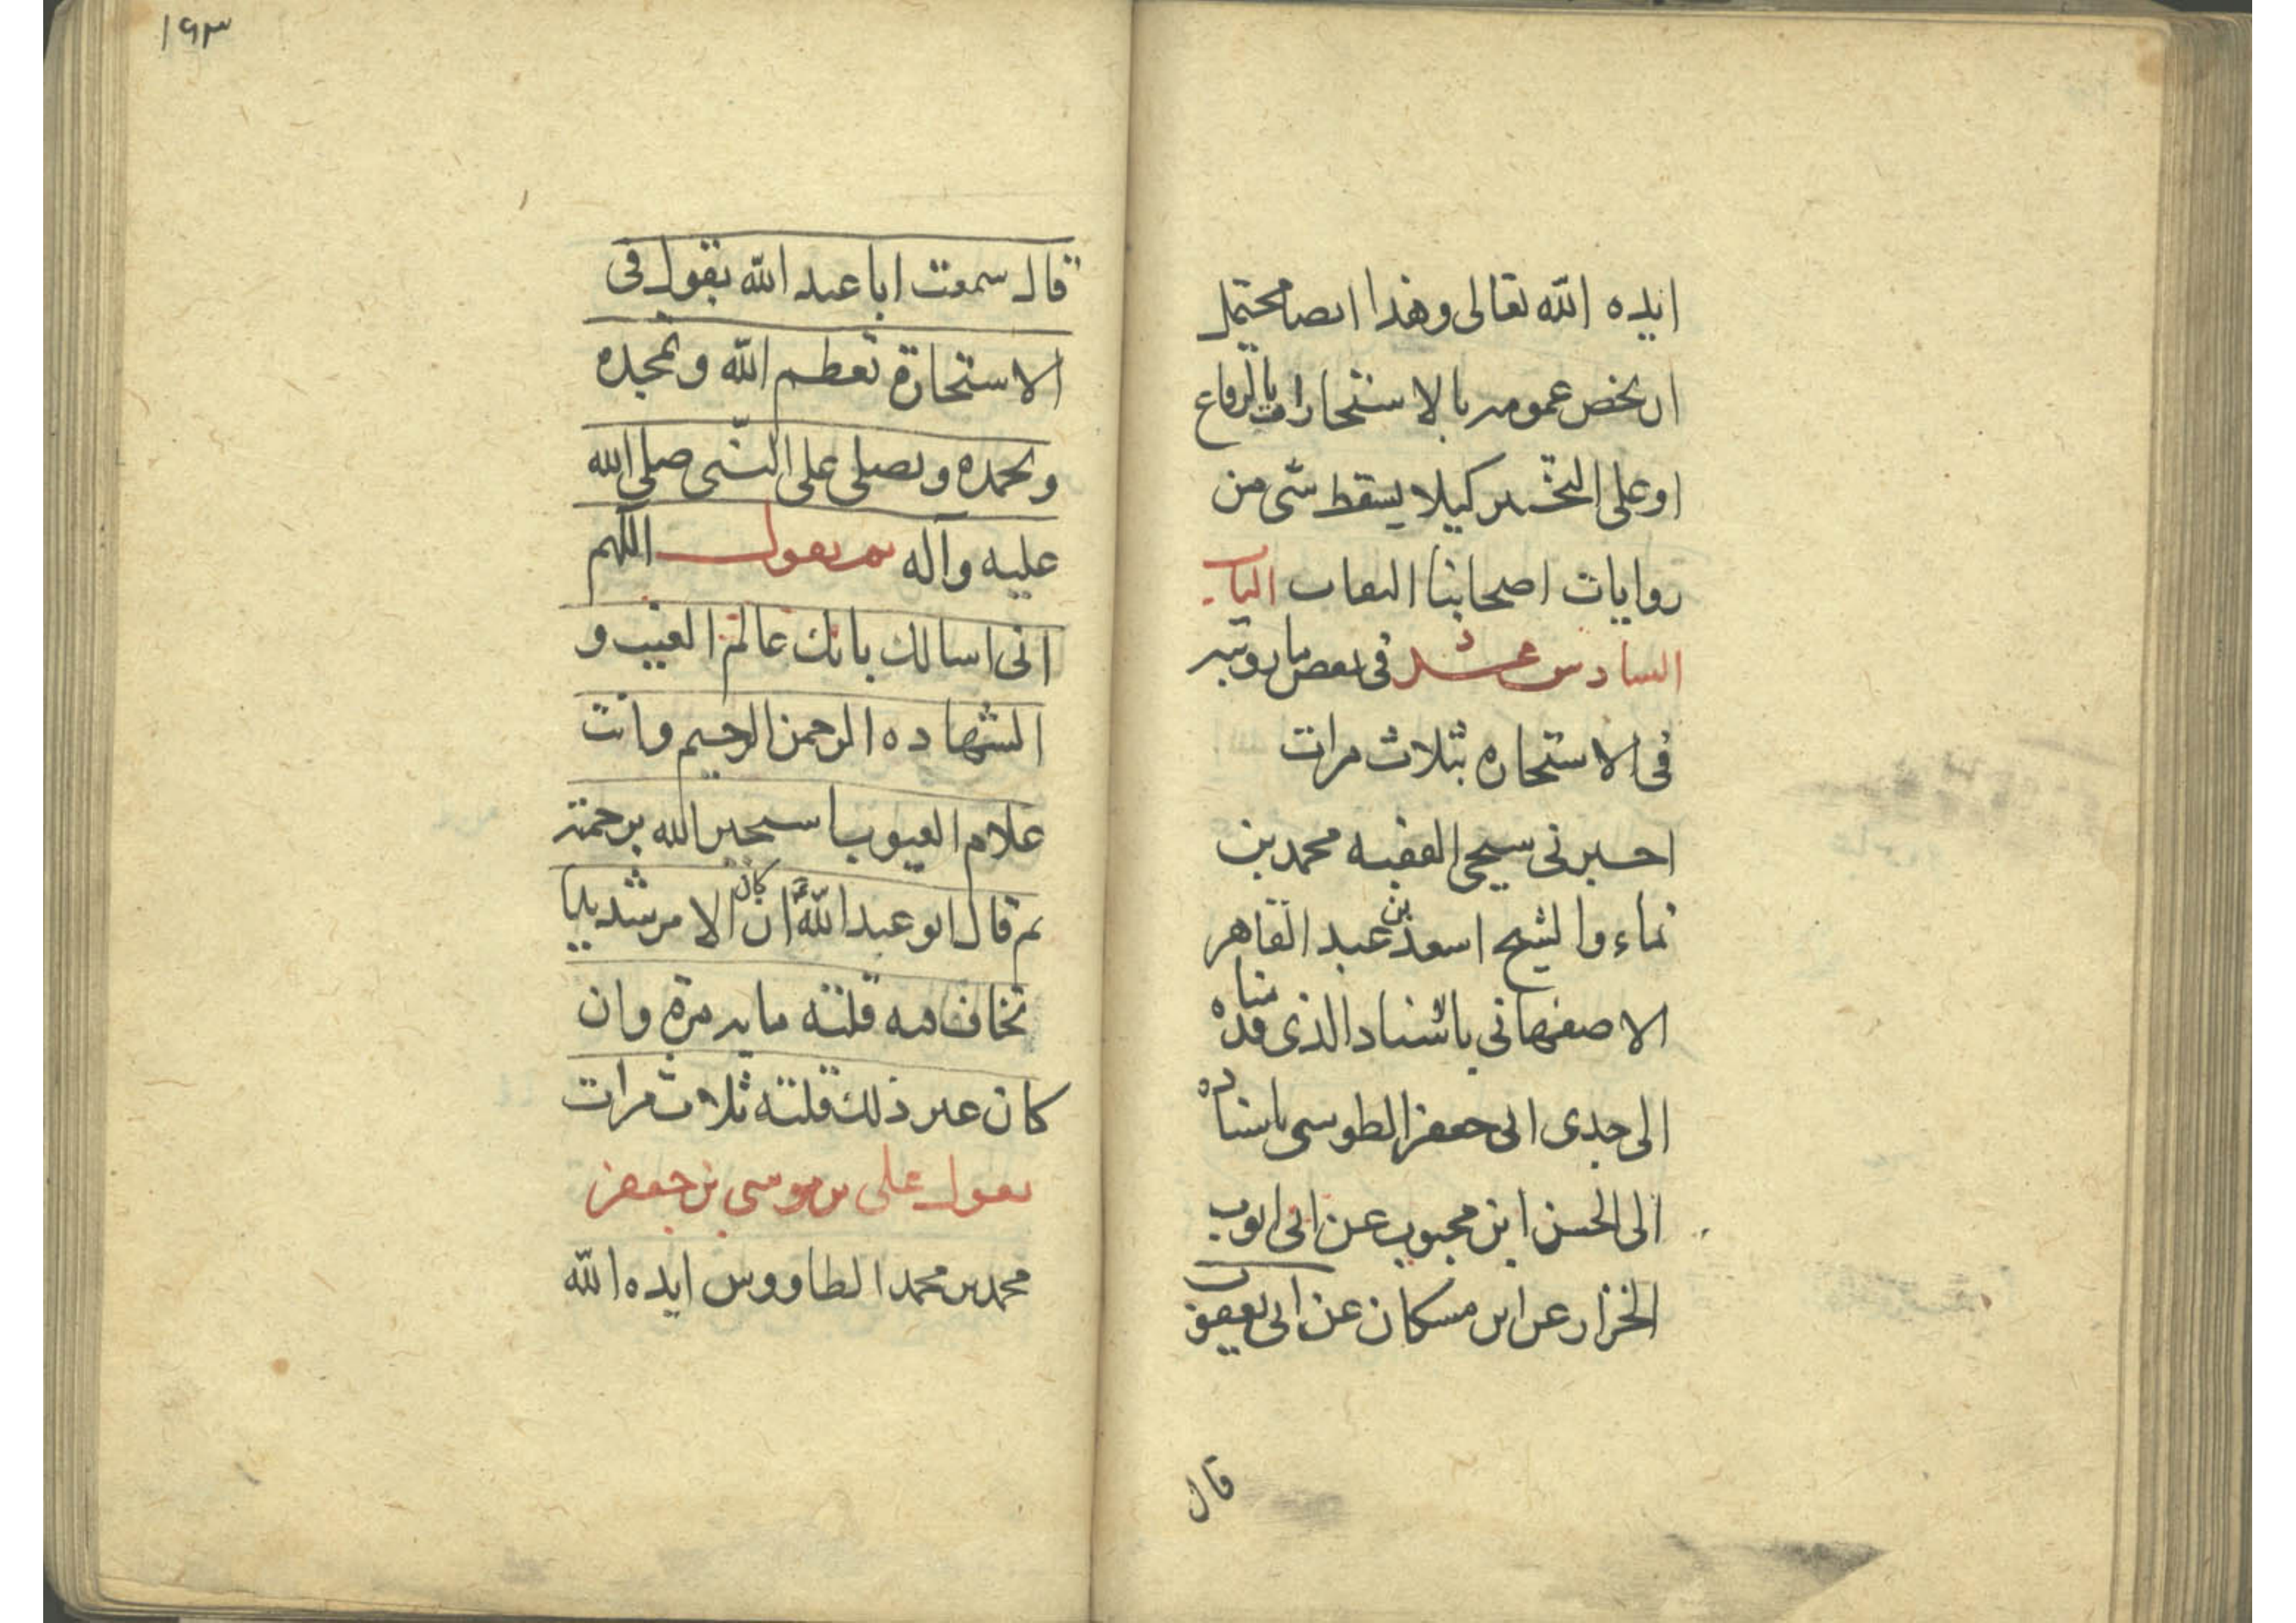 ايده الله تعالى وهذا ايضا محتمل
ان يخص عمومه بالاستخارات بالرقاع
او على التخيير كيلا يسقط شئ من
روايات اصحابنا الثقات الباب
السادس عشر في بعض ما رويته
فى الاستخاره بثلاث مرات
اخبرنى شيخى الفقيه محمد بن
نماء والشيخ اسعد بن عبد القاهر
الاصفهاني باسناد الذى قدمناه
الى جدى ابى جعفر الطوسى باسناده
الى الحسن ابن محبوب عن ابى ايوب
الخزاز عن ابن مسكان عن ابى يعفور
قال
١٩٣
قال سمعت ابا عبد الله يقول فى
الاستخارة تعظم الله وتمجده
وتحمده وتصلى على النبى صلى الله
عليه وآله ثم يقول اللهم
انى اسالك بانك عالم الغيب و
الشهاده الرحمن الرحيم وانت
علام الغيوب استخير الله برحمته
ثم قال ابو عبد الله ان كان الامر شديدا
تخاف فيه قلته مايه مرة وان
كان غير ذلك قلته ثلاث مرات
يقول على بن موسى بن جعفر
محمد بن محمد الطاووس ايده الله